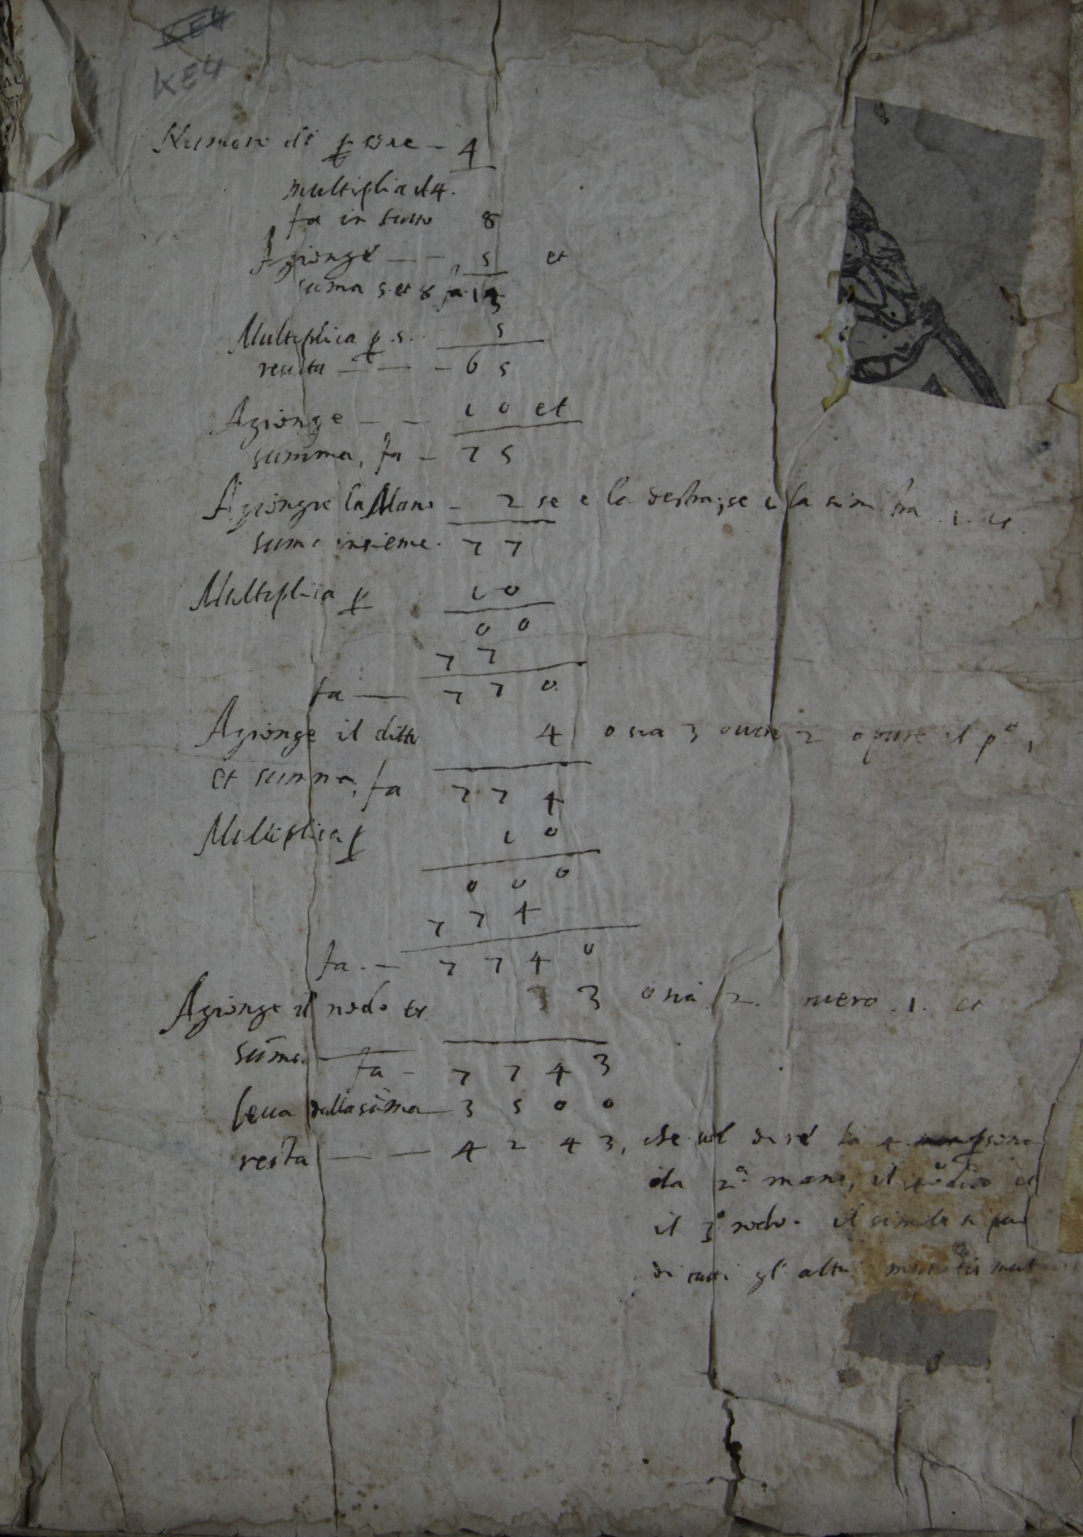 KE4
KE4
Numero di ꝑsone - 4
multiplia il 4.
fa in tutto 8
Agionge — - 5 et
suma 5 et 8 fa 13
Multiplica ꝑ 5. 5
resulta — — - 6 5
Agionge - - 1 0 et
summa, fa - 7 5
Agiongie la Mano - 2 se e la destra; se e la sinistra 1. et
suma insieme. 7 7
Multiplica ꝑ 1 0
0 0
7 7
fa — 7 7 0
Agionge il ditto 4 o sia 3 overo 2 o pure il pº,
et summa, fa 7 7 4
Multiplica ꝑ 1 0
0 0 0
7 7 4
fa. - 7 7 4 0
Agionge il nodo et 3 3 o sia 2. overo .1. et
sũma. — fa - 7 7 4 3
leva dalla sũma - 3 5 0 0
resta — — 4 2 4 3, che vol dire la 4 ꝑsona
da 2ª mano, il 4º dito et
il 3º nodo. il simile si può
di tutti gl' altri